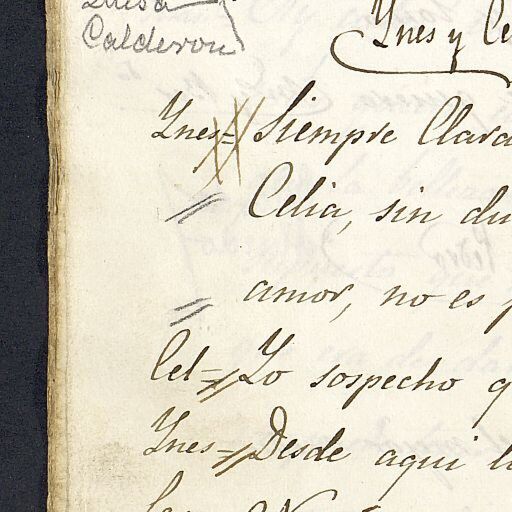 Luisa
Calderon
Ynes y Ce
Ynes = Siempre Clara
Celia, sin du
amor, no es p
Cel = Yo sospecho q
Ynes = Desde aqui l